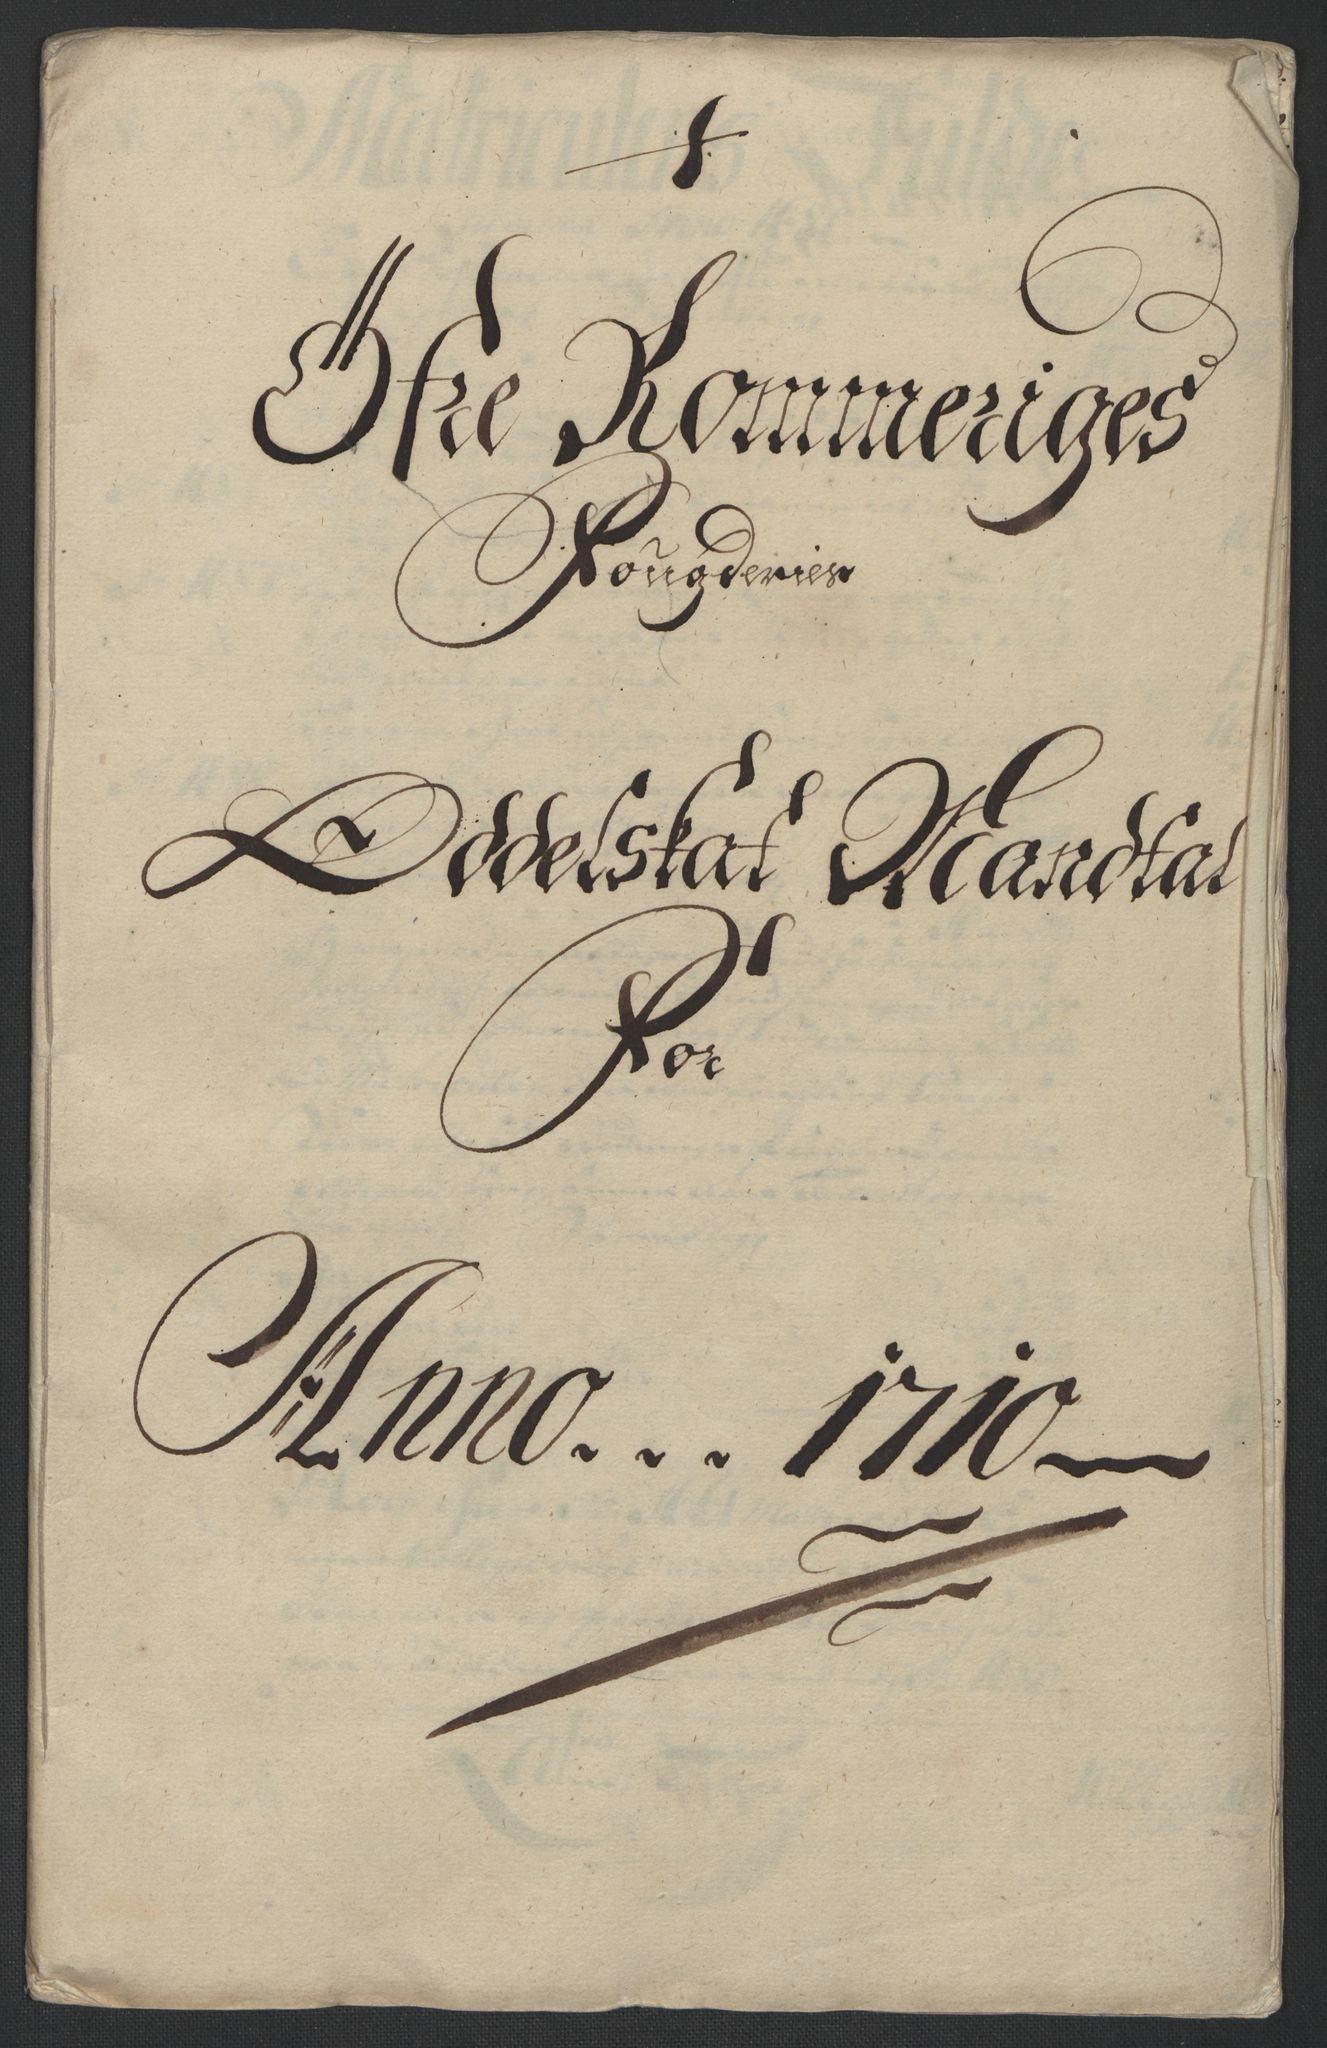 Öfre Rommeriges
Fougderies
Oddelskat Mandtal
For
Anno... 1710